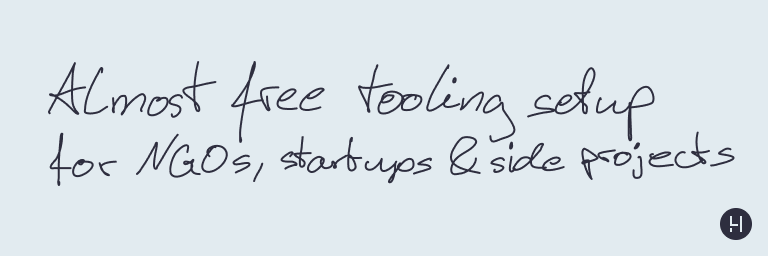 Almost free tooling setup
for NGOs, startups & side projects